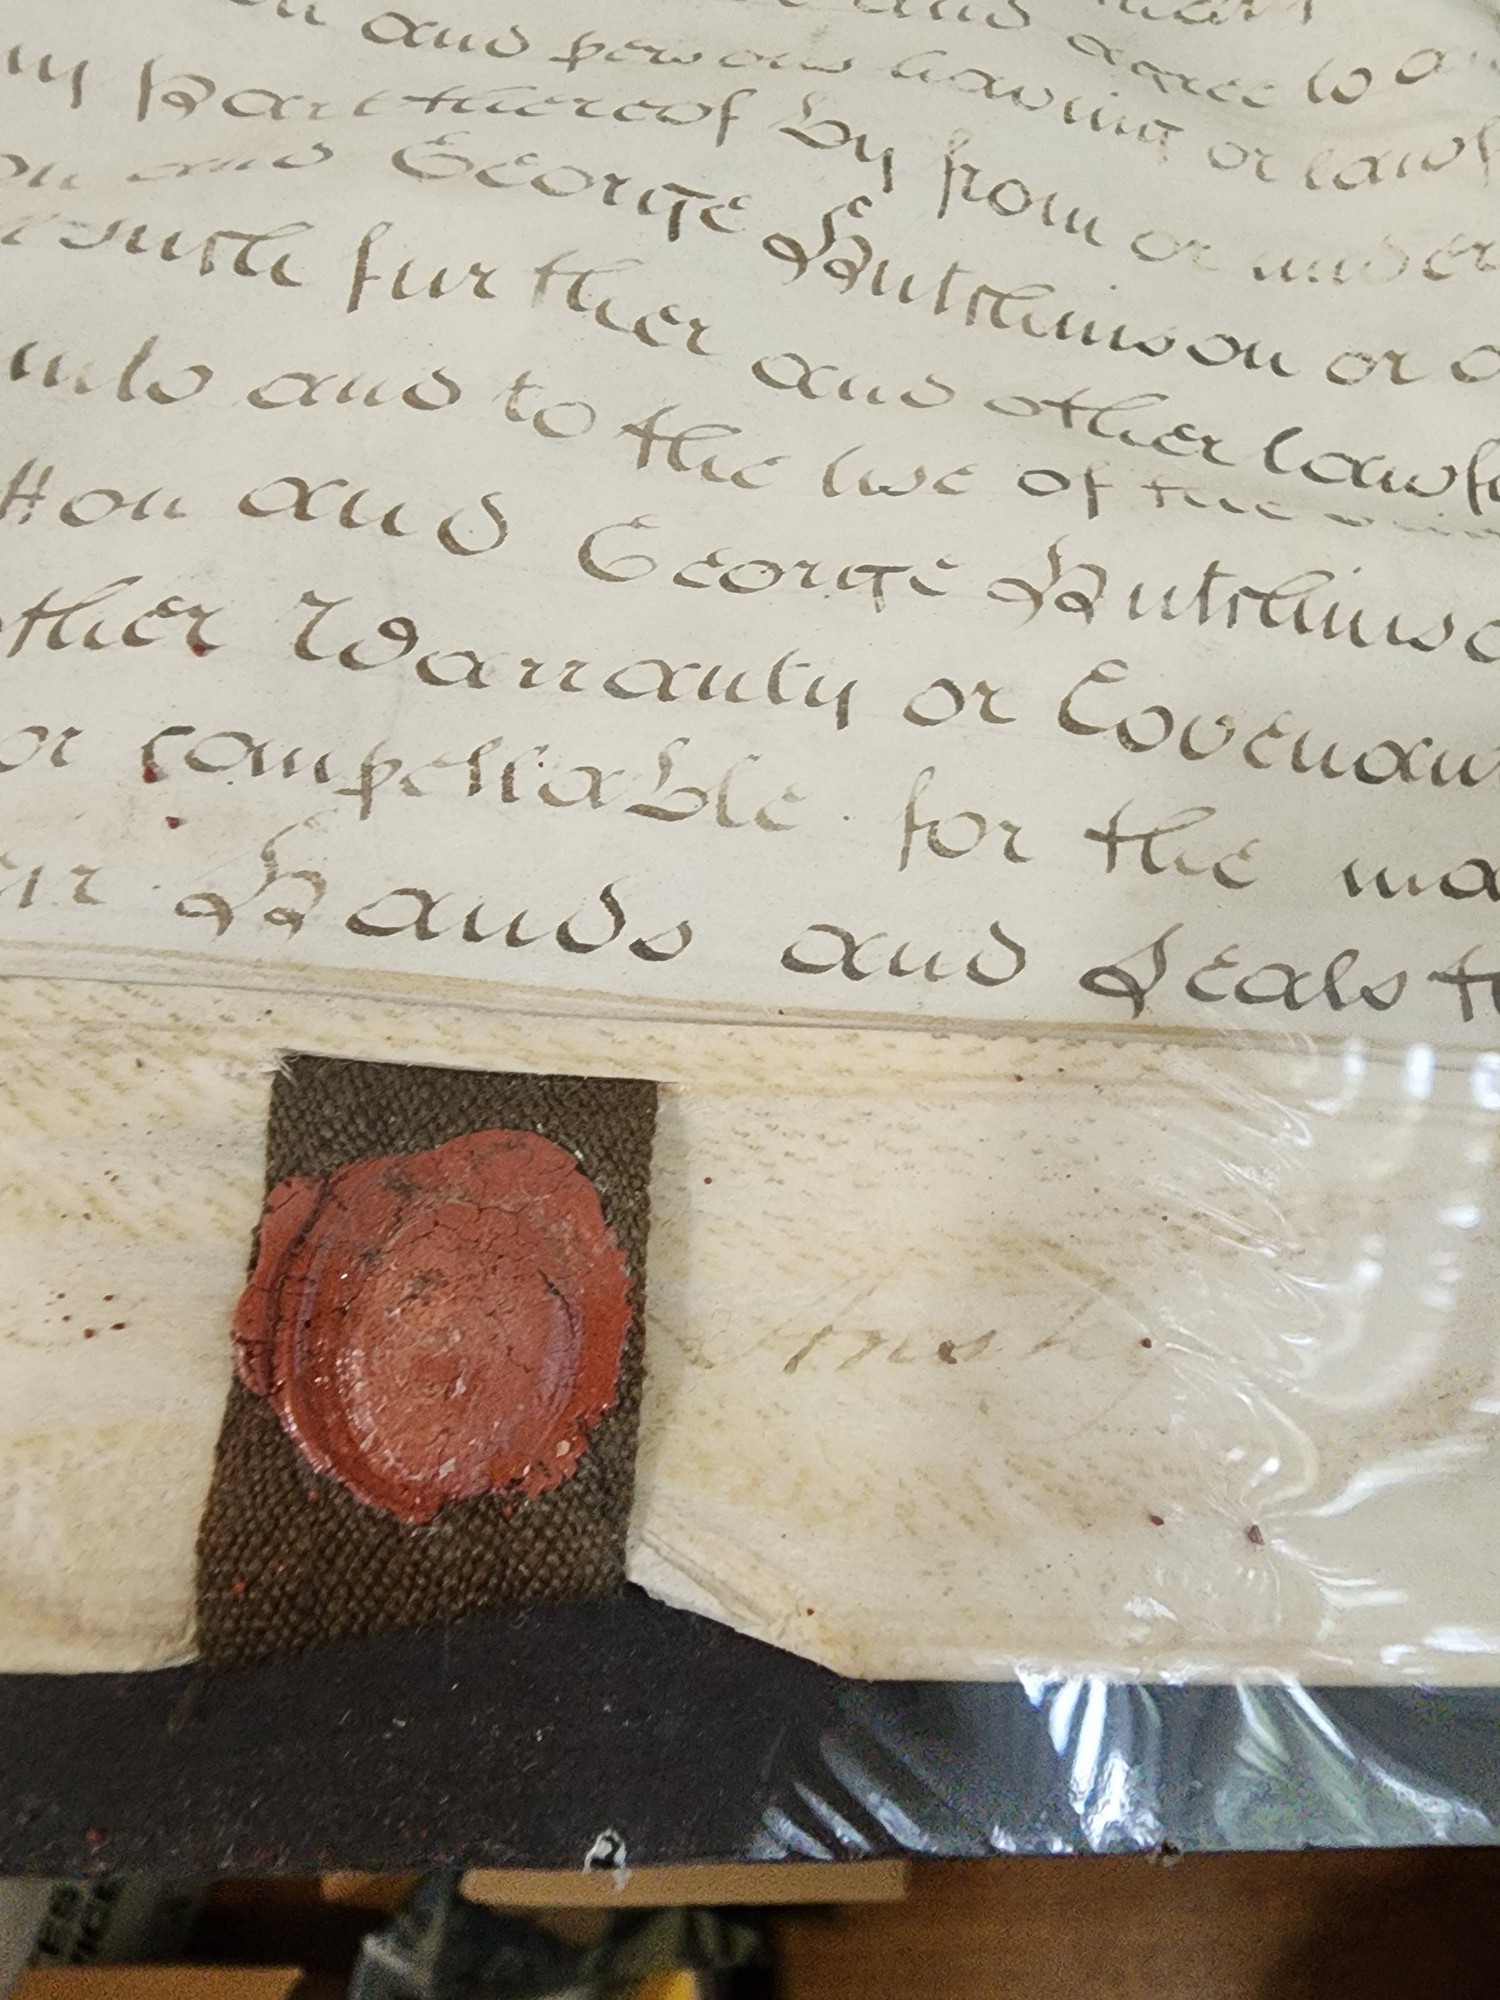 and agree to
and persons having or lawf
part thereof by from or under
and George Hutchinson or
further and other lawfu
unto and to the use of the
tton and George Hutchinso
other Warranty or Covenan
or compellable for the ma
eir Hands and Seals